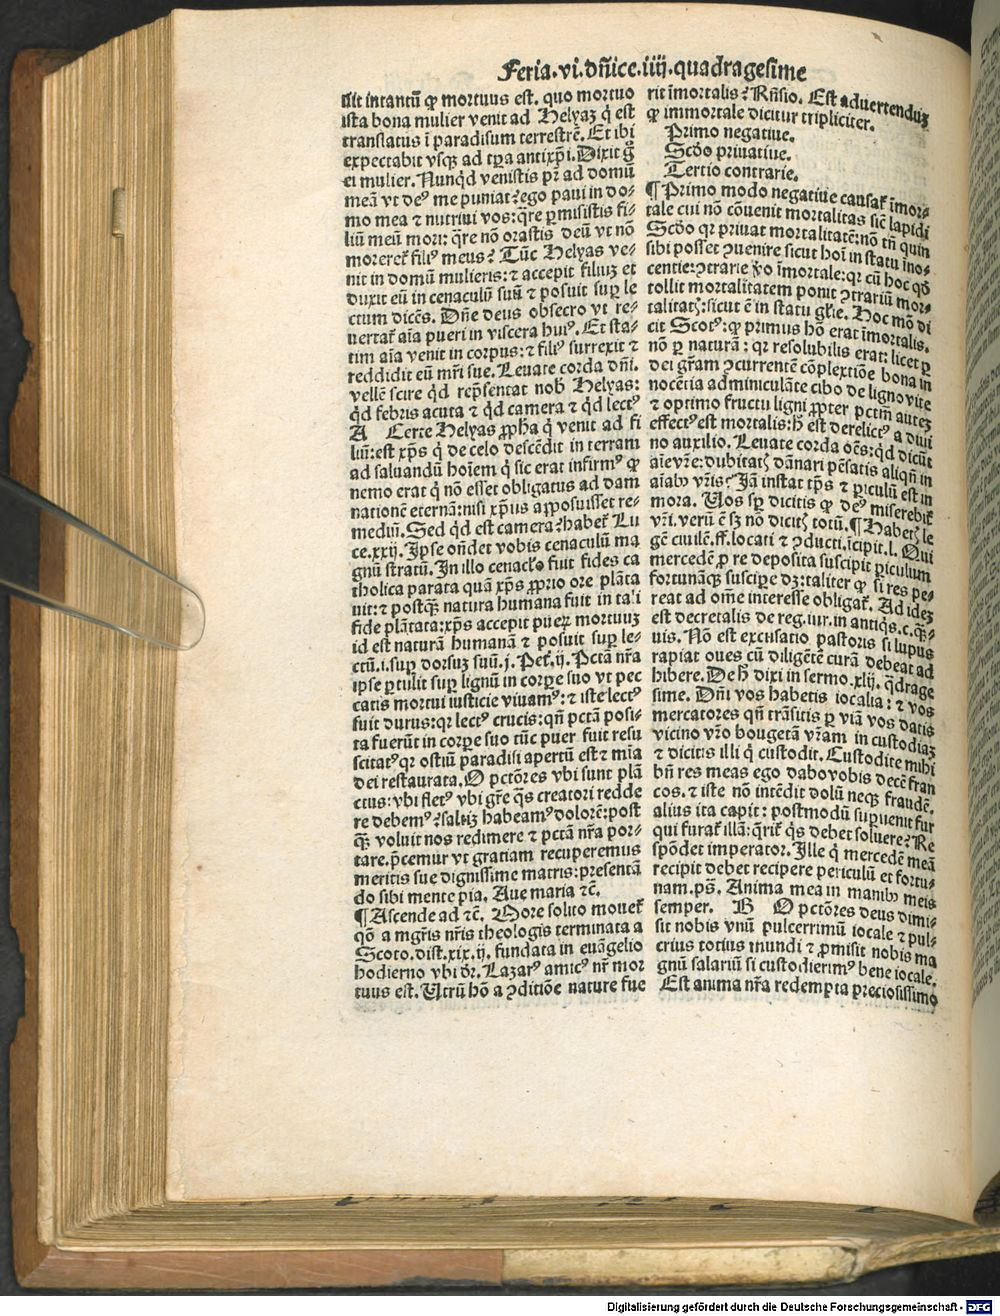 Feria.vi.dn̄ice.iiij.quadragesime
sit intantū ꝙ mortuus est. quo mortuo
ista bona mulier venit ad Helyaꝫ q̇ est
translatus ī paradisum terrestrē. Et ibi
expectabit vsqꝫ ad tp̄a antixp̄i. Dixit g̊
ei mulier. Nunqd̓ venistis pr̄ ad domū
meā vt deꝰ me puniat? ego paui in do⸗
mo mea ⁊ nutriui vos: q̄re ꝑmisistis fi⸗
liū meū mori: q̄re nō orastis deū vt nō
morereꝉ filiꝰ meus? Tūc Helyas ve⸗
nit in domū mulieris: ⁊ accepit filiuꝫ et
duxit eū in cenaculū suū ⁊ posuit suꝑ le
ctum dicēs. Dn̄e deus obsecro vt re⸗
uertaꝉ aīa pueri in viscera huiꝰ. Et sta⸗
tim aīa venit in corpus: ⁊ filiꝰ surrexit ⁊
reddidit eū mr̄i sue. Leuate corda dn̄i.
vellē scire qd̓ rep̄sentat nob̄ Helyas:
qd̓ febris acuta ⁊ qd̓ camera ⁊ qd̓ lectꝰ
A Certe Helyas ꝓph̄a q̇ venit ad fi
liū: est xp̄s q̇ de celo descēdit in terram
ad saluandū hoīem q̇ sic erat infirmꝰ ꝙ
nemo erat q̇ nō esset obligatus ad dam
nationē eternā: nisi xp̄us apposuisset re⸗
mediū. Sed qd̓ est camera? habeꝉ Lu
ce.xxij. Ipse on̄det vobis cenaculū ma
gnū stratū. In illo cenaclo fuit fides ca
tholica parata quā xp̄s ꝓprio ore plāta
uit: ⁊ postqꝫ natura humana fuit in tali
fide plātata: xp̄s accepit pueꝝ mortuuꝫ
id est naturā humanā ⁊ posuit suꝑ le⸗
ctū.i. suꝑ dorsuꝫ suū.j. Peꝉ.ij. Pctā nr̄a
ipse ꝑtulit suꝑ lignū in corꝑe suo vt pec
catis mortui iusticie viuamꝰ: ⁊ iste lectꝰ
fuit durus: qꝛ lectꝰ crucis: qn̄ pctā posi⸗
ta fuerūt in corꝑe suo tūc puer fuit resu
scitatꝰ qꝛ ostiū paradisi apertū est ⁊ mīa
dei restaurata. O pctōres vbi sunt plā
ctus: vbi fletꝰ vbi gr̄e q̄s creatori redde
re debemꝰ? saltiꝫ habeamꝰ dolorē: post
qꝫ voluit nos redimere ⁊ pctā nr̄a por⸗
tare. p̄cemur vt gratiam recuperemus
meritis sue dignissime matris: presentā
do sibi mente pia. Aue maria ⁊c̄.
¶ Ascende ad ⁊c̄. More solito moueꝉ
qō a mgr̄is nr̄is theologis terminata a
Scoto. dist.xix.ij. fundata in euāgelio
hodierno vbi dr̄. Lazarꝰ amicꝰ nr̄ mor
tuus est. Utrū hō a ꝯditiōe nature fue
rit īmortalis? Rn̄sio. Est aduertenduꝫ
ꝙ immortale dicitur tripliciter.
Primo negatiue.
Scd̄o priuatiue.
Tertio contrarie.
¶ Primo modo negatiue causaꝉ īmor⸗
tale cui nō cōuenit mortalitas sic̄ lapidi
Scd̄o qꝛ priuat mortalitatē: nō tn̄ quin
sibi posset ꝯuenire sicut hoī in statu īno⸗
centie: ꝯtrarie v̊o īmortale: qꝛ cū hoc qd̓
tollit mortalitatem ponit ꝯtrariū mor⸗
talitatꝭ: sicut ē in statu gl̄ie. Hoc mō di
cit Scotꝰ: ꝙ primus hō erat īmortalis.
nō ꝑ naturā: qꝛ resolubilis erat: licet ꝑ
dei gr̄am ⁊ ꝯcurrentē cōplextiōe bona in
nocētia adminiculāte cibo de ligno vite
⁊ optimo fructu ligni ꝓpter pctm̄ auteꝫ
effectꝰ est mortalis: h̄ est derelictꝰ a diui
no auxilio. Leuate corda oēs: qd̓ dicūt
aīe vr̄e: dubitatꝭ dānari pēsatis aliqn̄ in
aīabꝰ vr̄is? Iā instat tp̄s ⁊ ꝑiculū est in
mora. Uos sꝑ dicitis ꝙ deꝰ miserebiꝉ
vr̄i. verū ē sꝫ nō dicitꝭ totū. ¶ Habetꝭ le
gē ciuilē.ff. locati ⁊ ꝯducti. īcipit.l. Qui
mercedē ꝓ re deposita suscipit ꝑiculum
fortunāqꝫ suscipe dꝫ: taliter ꝙ si res pe⸗
reat ad om̄e interesse obligaꝉ. Ad ideꝫ
est decretalis de reg.iur. in antiq̇s.c. q̄ꝫ⸗
uis. Nō est excusatio pastoris si lupus
rapiat oues cū diligētē curā debeat ad
hibere. De h̄ dixi in sermo.xlij. q̄drage
sime. Dn̄i vos habetis iocalia: ⁊ vos
mercatores qn̄ trāsitis ꝑ viā vos datis
vicino vr̄o bougetā vr̄am in custodiaꝫ
⁊ dicitis illi q̇ custodit. Custodite mihi
bn̄ res meas ego dabo vobis decē fran
cos. ⁊ iste nō intēdit dolū neqꝫ fraudē.
alius ita capit: postmodū suꝑuenit fur
qui furaꝉ illā: q̄riꝉ q̇s debet soluere? Re
spōdet imperator. Ille q̇ mercedē meā
recipit debet recipere periculū et fortu⸗
nam. ps̄. Anima mea in manibꝰ meis
semper. B O pctōres deus dimi⸗
sit nobis vnū pulcerrimū iocale ⁊ pul⸗
crius totius mundi ⁊ ꝓmisit nobis ma
gnū salariū si custodierimꝰ bene iocale.
Est anima nr̄a redempta preciosissimo
Digitalisierung gefördert durch die Deutsche Forschungsgemeinschaft - DFG